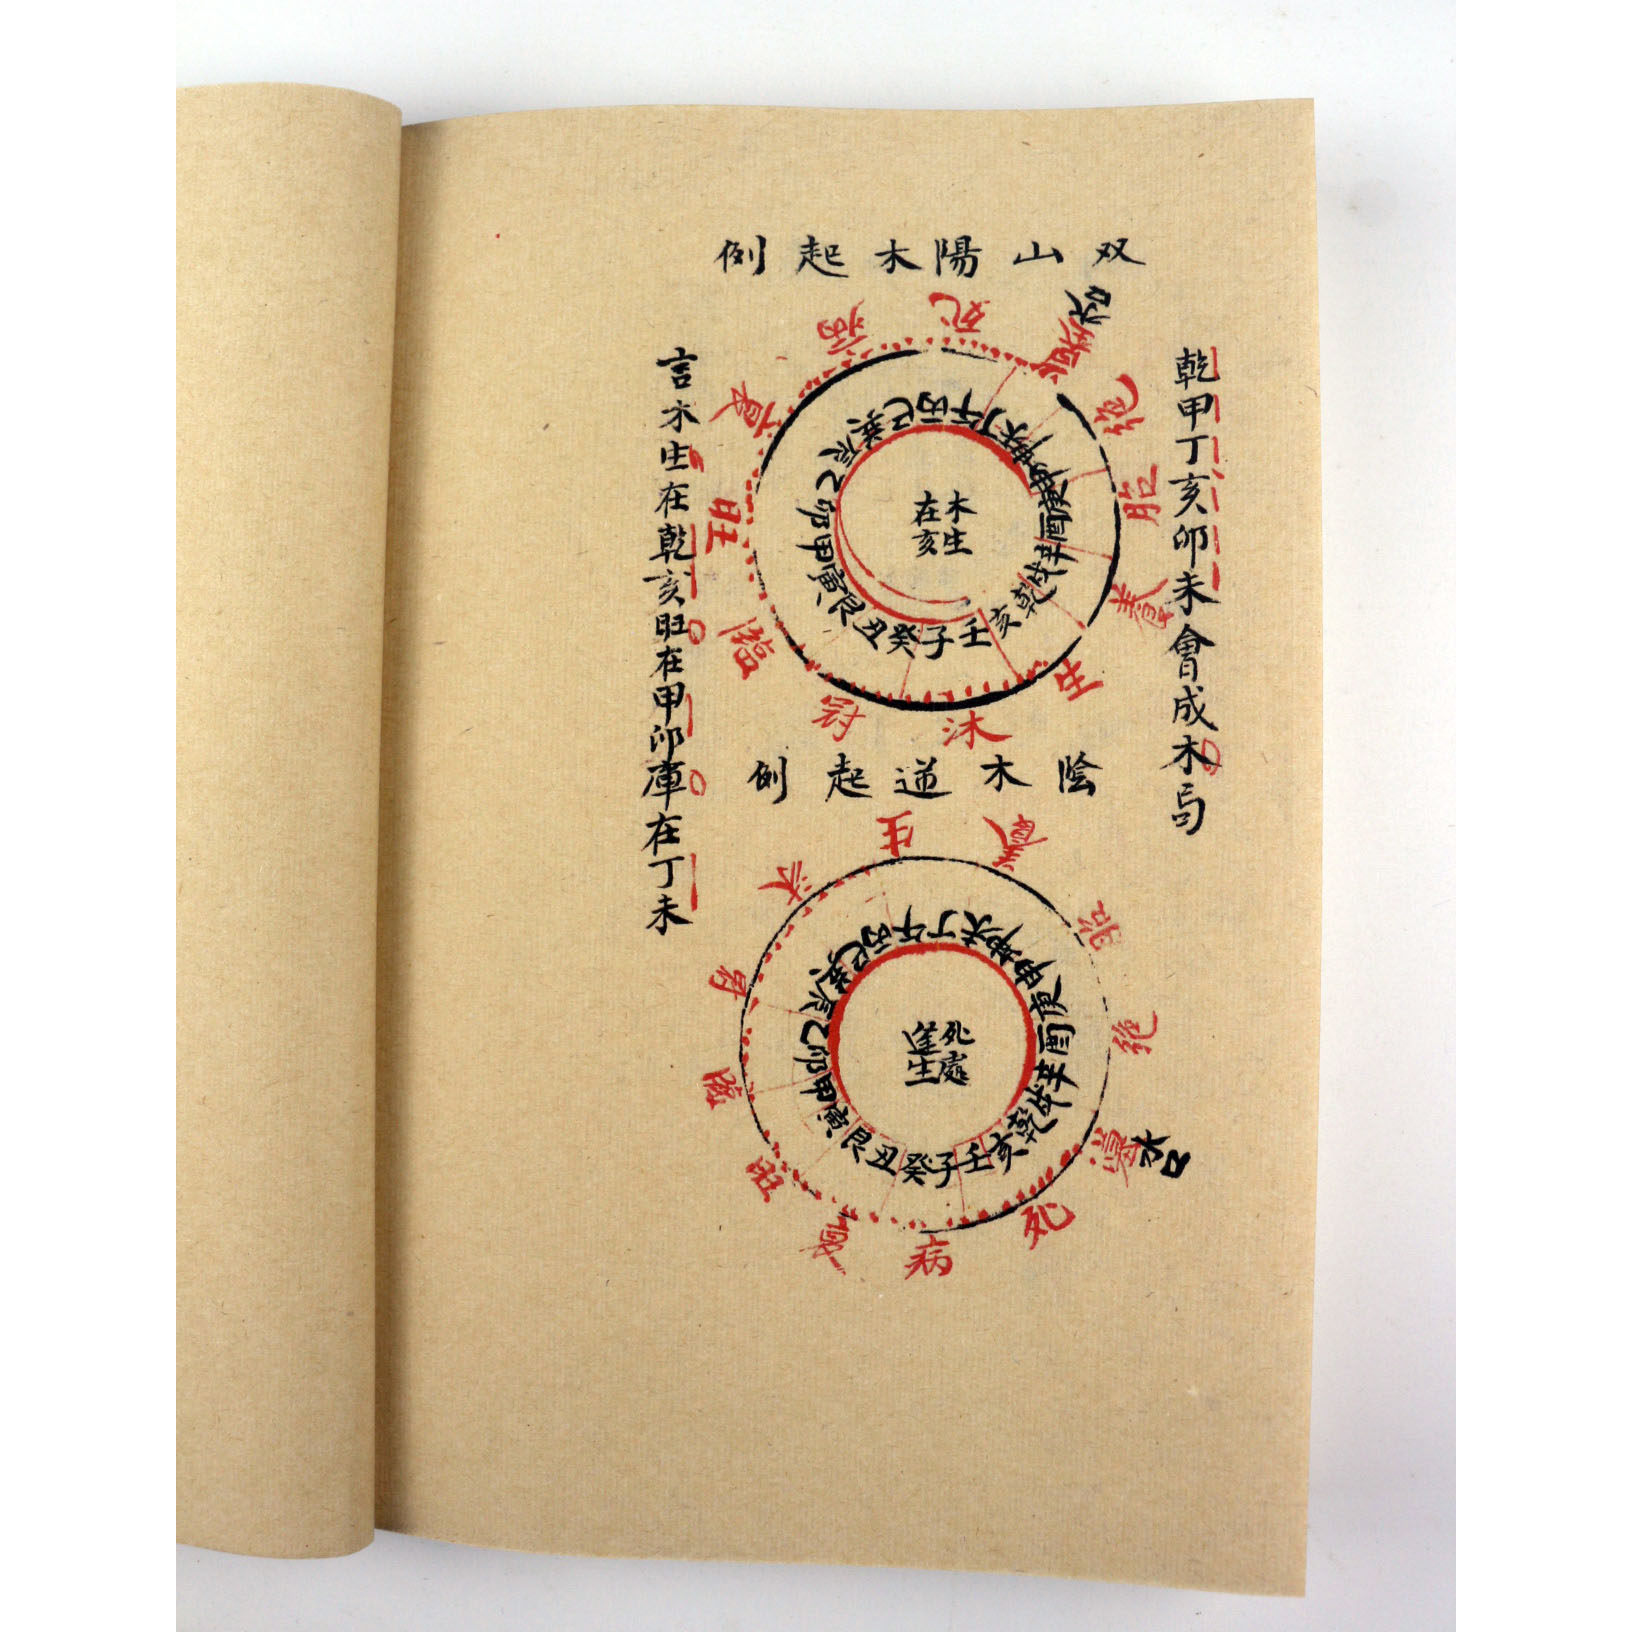 双山陽木起例
乾甲丁亥卯未會成木局
水口
生沐冠臨旺衰病死墓绝胎養
壬子癸丑艮寅甲卯乙辰巽巳丙午丁未坤申庚酉辛戌乾亥
木生
在亥
言木生在乾亥旺在甲卯庫在丁未
陰木逆起例
生沐冠臨旺衰病死墓绝胎養
水口
壬子癸丑艮寅甲卯乙辰巽巳丙午丁未坤申庚酉辛戌乾亥
死處
逢生